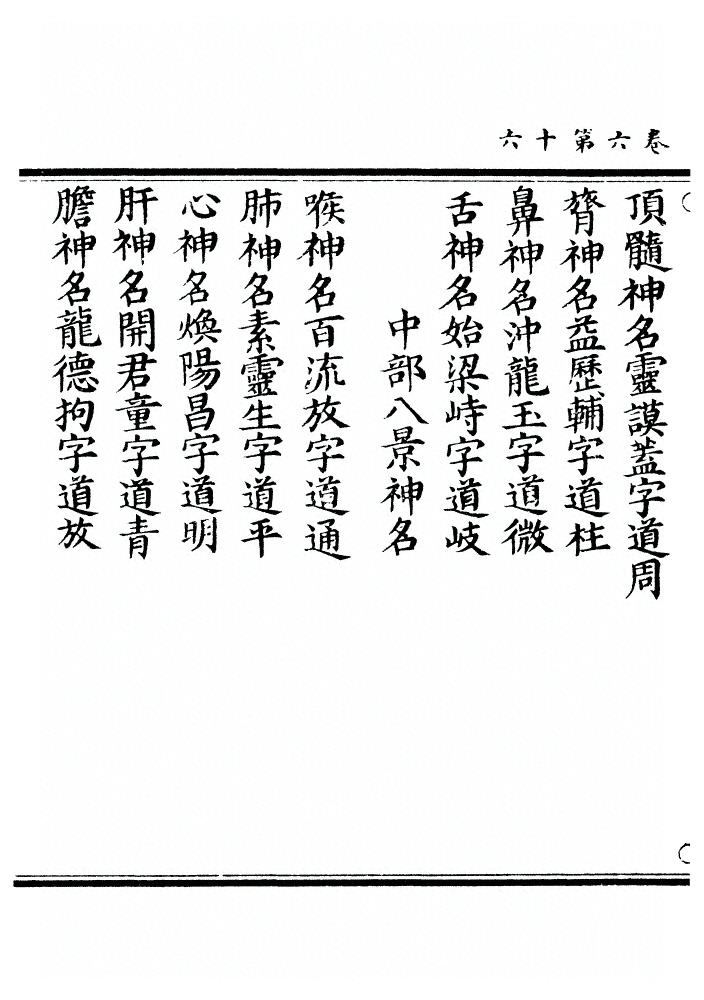 卷六第十六
頂髓神名靈謨蓋字道周
膂神名益歷輔字道柱
鼻神名沖龍玉字道微
舌神名始梁峙字道岐
中部八景神名
喉神名百流放字道通
肺神名素靈生字道平
心神名煥陽昌字道明
肝神名開君童字道青
膽神名龍德拘字道放